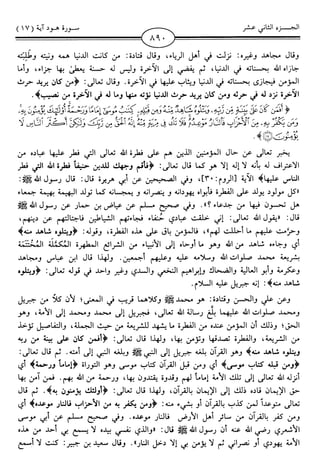 الجـــزء الثاني عشر
٨٩٠
سورة هود آية (١٧)
وقال مجاهد وغيره: نزلت في أهل الرياء، وقال قتادة: من كانت الدنيا همه ونيته وطَلِبَته
جازاه الله بحسناته في الدنيا، ثم يفضي إلى الآخرة وليس له حسنة يعطى بها جزاء، وأما
المؤمن فيجازى بحسناته في الدنيا ويثاب عليها في الآخرة. وقال تعالى: ﴿من كان يريد حرث
الآخرة نزد له في حرثه ومن كان يريد حرث الدنيا نؤته منها وما له في الآخرة من نصيب﴾.
﴿أَفَمَن كَانَ عَلَىٰ بَيِّنَةٍ مِّن رَّبِّهِۦ وَيَتْلُوهُ شَاهِدٌ مِّنْهُ وَمِن قَبْلِهِۦ كِتَٰبُ مُوسَىٰٓ إِمَامًا وَرَحْمَةً أُو۟لَٰٓئِكَ يُؤْمِنُونَ بِهِۦ
وَمَن يَكْفُرْ بِهِۦ مِنَ ٱلْأَحْزَابِ فَٱلنَّارُ مَوْعِدُهُۥ فَلَا تَكُ فِى مِرْيَةٍ مِّنْهُ إِنَّهُ ٱلْحَقُّ مِن رَّبِّكَ وَلَٰكِنَّ أَكْثَرَ ٱلنَّاسِ لَا
يُؤْمِنُونَ﴾
يخبر تعالى عن حال المؤمنين الذين هم على فطرة الله تعالى التي فطر عليها عباده من
الاعتراف له بأنه لا إله إلا هو كما قال تعالى: ﴿فأقم وجهك للدين حنيفاً فطرة الله التي فطر
الناس عليها﴾ الآية [الروم: ٣٠]. وفي الصحيحين عن أبي هريرة قال: قال رسول الله ﷺ:
«كل مولود يولد على الفطرة فأبواه يهودانه و ينصرانه و يمجسانه كما تولد البهيمة بهيمة جمعاء
هل تحسون فيها من جدعاء ؟». وفي صحيح مسلم عن عياض بن حمار عن رسول الله ﷺ
قال: «يقول الله تعالى: إني خلقت عبادي حُنفاء فجاءتهم الشياطين فاجتالتهم عن دينهم،
وحرّمت عليهم ما أحللت لهم»، فالمؤمن باق على هذه الفطرة، وقوله: ﴿ويتلوه شاهد منه﴾
أي وجاءه شاهد من الله وهو ما أوحاه إلى الأنبياء من الشرائع المطهرة المُكمَّلة المُخَتَتمَة
بشريعة محمد صلوات الله وسلامه عليه وعليهم أجمعين. ولهذا قال ابن عباس ومجاهد
وعكرمة وأبو العالية والضحاك وإبراهيم النخعي والسدي وغير واحد في قوله تعالى: ﴿ويتلوه
شاهد منه﴾: إنه جبريل عليه السلام.
وعن علي والحسن وقتادة: هو محمد ﷺ وكلاهما قريب في المعنى؛ لأن كلاً من جبريل
ومحمد صلوات الله عليهما بلّغ رسالة الله تعالى، فجبريل إلى محمد ومحمد إلى الأمة، وهو
الحق؛ وذلك أن المؤمن عنده من الفطرة ما يشهد للشريعة من حيث الجملة، والتفاصيل تؤخذ
من الشريعة، والفطرة تصدقها وتؤمن بها، ولهذا قال تعالى: ﴿أفمن كان على بينة من ربه
ويتلوه شاهد منه﴾ وهو القرآن بلغه جبريل إلى النبي ﷺ وبلغه النبي إلى أمته. ثم قال تعالى:
﴿ومن قبله كتاب موسى﴾ أي ومن قبل القرآن كتاب موسى وهو التوراة ﴿إماماً ورحمة﴾ أي
أنزله الله تعالى إلى تلك الأمة إماماً لهم وقدوة يقتدون بها، ورحمة من الله بهم. فمن آمن بها
حق الإيمان قاده ذلك إلى الإيمان بالقرآن، ولهذا قال تعالى: ﴿أولئك يؤمنون به﴾. ثم قال
تعالى متوعداً لمن كذب بالقرآن أو بشيء منه: ﴿ومن يكفر به من الأحزاب فالنار موعده﴾ أي
ومن كفر بالقرآن من سائر أهل الأرض فالنار موعده. وفي صحيح مسلم عن أبي موسى
الأشعري رضي الله عنه أن رسول الله ﷺ قال: «والذي نفسي بيده لا يسمع بي أحد من هذه
الأمة يهودي أو نصراني ثم لا يؤمن بي إلا دخل النار». وقال سعيد بن جبير: كنت لا أسمع